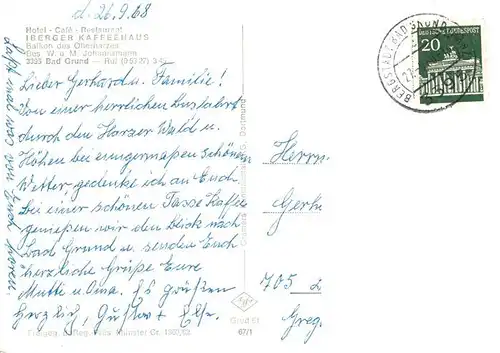 d. 26.9.68
Hotel - Café - Restaurant
IBERGER KAFFEEHAUS
Balkon des Oberharzes
Bes. W. u. M. Johannsmann
3363 Bad Grund — Ruf (0 53 27)
Lieber Gerhard u. Familie!
Von einer herrlichen Busfahrt
durch den Harzer Wald u.
Höhen bei einigermaßen schönem
Wetter gedenke ich an Euch
Bei einer schönen Tasse Kaffee
genießen wir den Blick nach
Bad Grund u. senden Euch
herzliche Grüße Eure
Mutti u. Oma. Es grüßen
herzlich, Gustav + Else.
laßt mal was von Euch hören.
Freigeg. Reg. Präs. Münster
Grud 61
67/1
DEUTSCHE BUNDESPOST
20
BERGSTADT BAD GRUND
Herrn
Gerh
705
Greg.